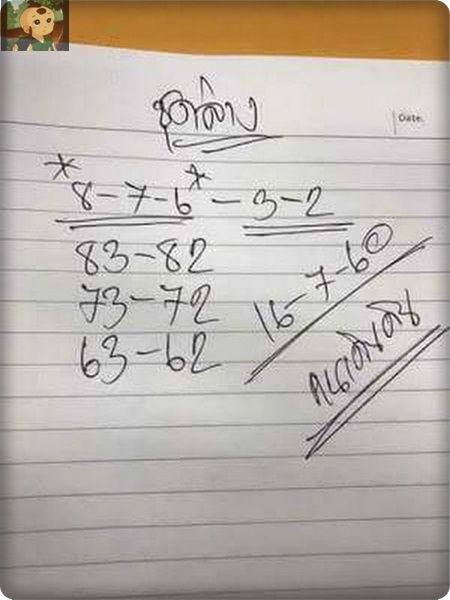 ชุดล่าง
Date.
*8-7-6*-3-2
83-82
73-72
63-62
16-7-60
คนเดินดิน